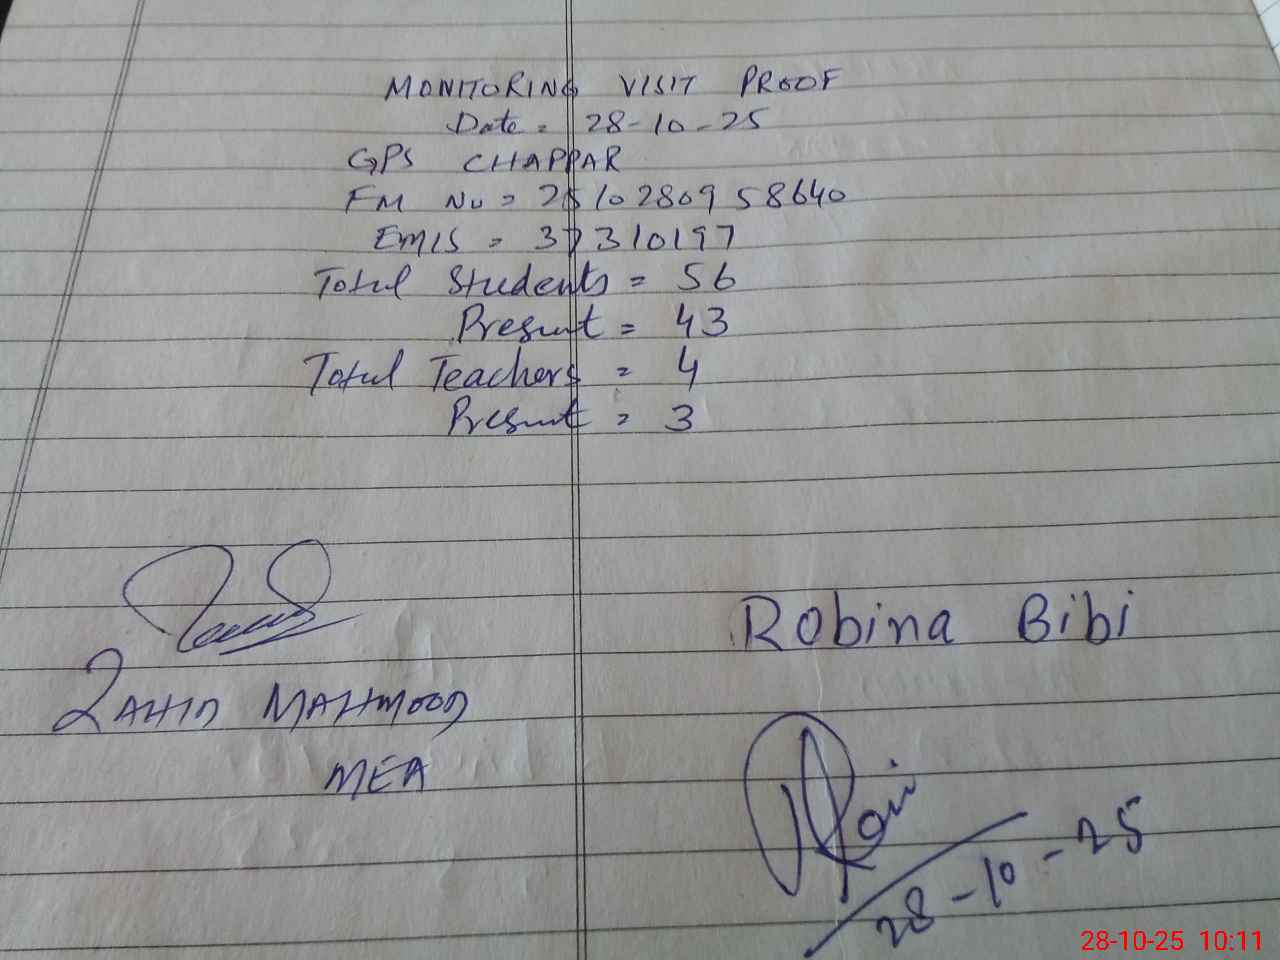 MONITORING VISIT PROOF
Date = 28-10-25
GPS CHAPPAR
FM No = 2510280958640
EMIS = 37310197
Total Students = 56
Present = 43
Total Teachers = 4
Present = 3
Robina Bibi
ZAHID MAHMOOD
MEA
28-10-25
28-10-25 10:11